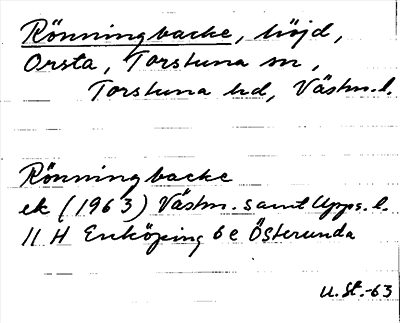 Rönningbacke, höjd,
Orsta, Torstuna sn,
Torstuna hd, Västm. l.
Rönningbacke
ek (1963) Västm. samt Upps. l.
11 H Enköping 6 e Österunda
U. St. -63